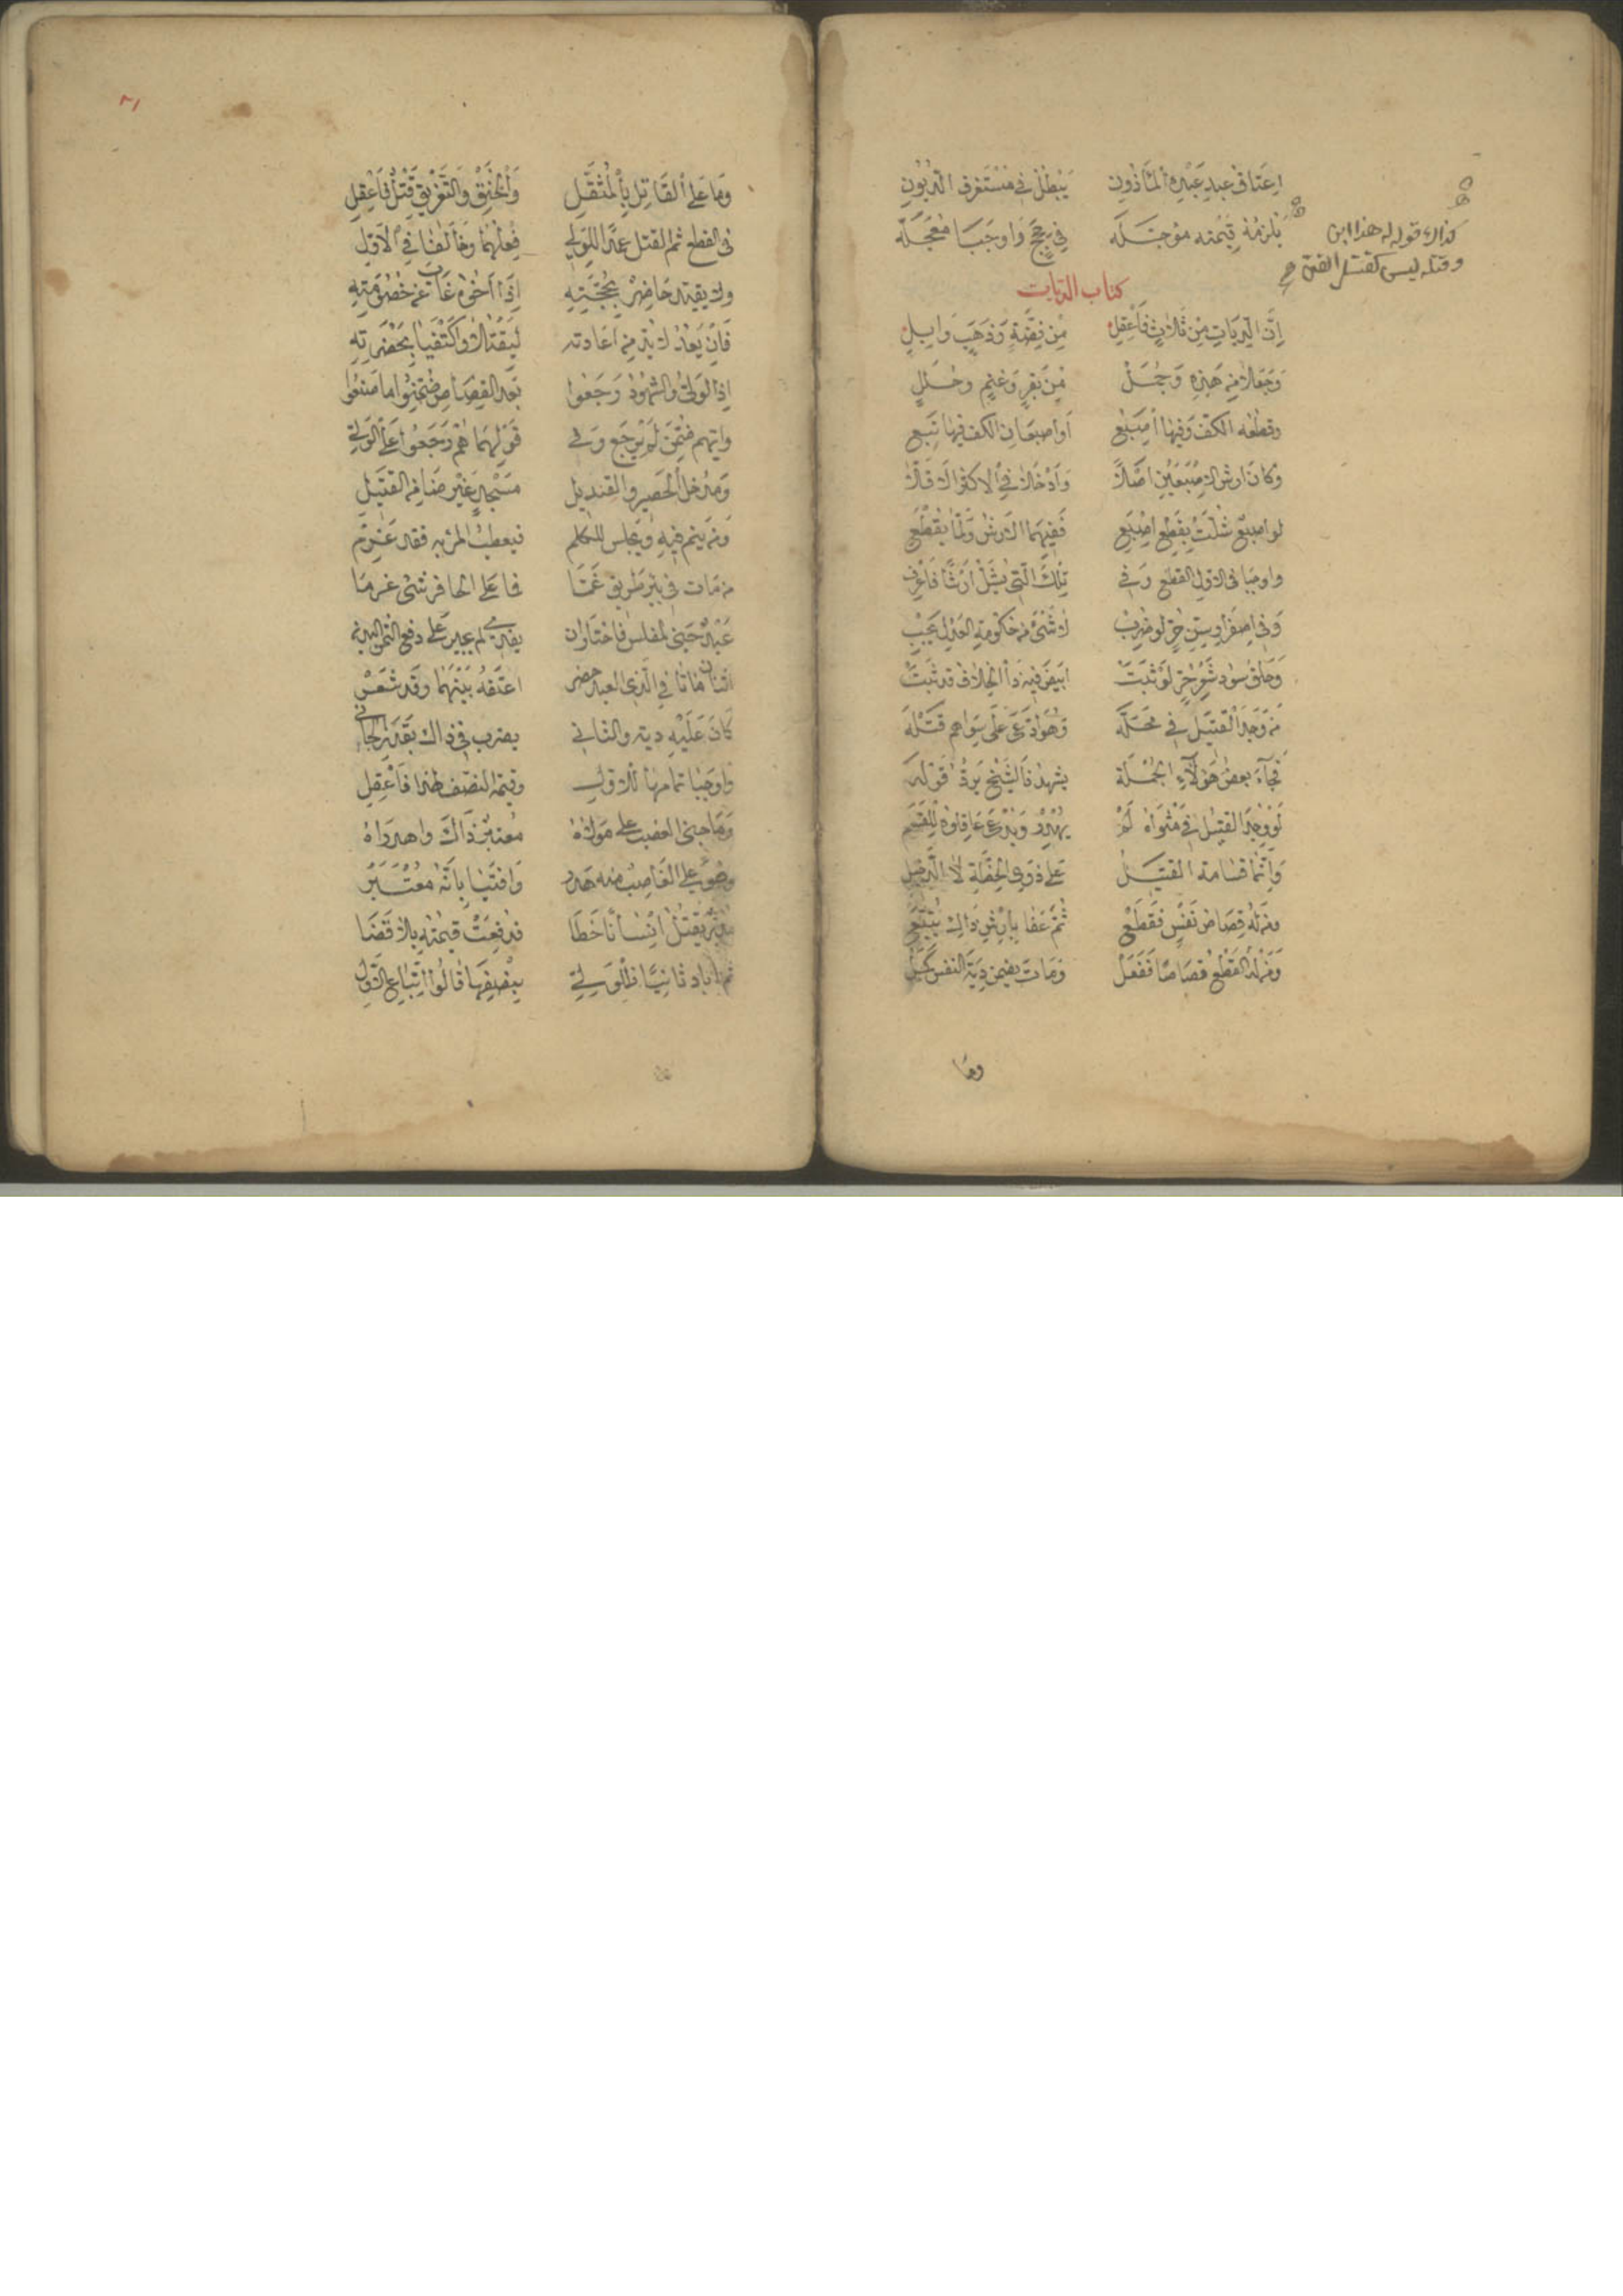 اعتاق عبد عبده المأذون يبطل في مستغرق الديون
يلزمه قيمته مؤجله في حجج وأوجبا معجله
كذاك قوله له هذا ابن
وقتله ليس كقتل
كتاب الديات
إن الديات من ثلاث فاعقل من فضة وذهب وابل
وجعلا من هذه وجمل من بقر وغنم وحلل
وقطعه الكف وفيها اصبع أو اصبعان الكف فيها تبع
وكان ارش الاصبعين اصلا وأدخلا في الاكثر الاقلا
لو اصبع شلت بقطع اصبع ففيهما الارش ولما يقطع
وأوجبا في الاول القطع وفي تلك التي يشل ارشا فاعرف
وفي اصفرار سن حر لو ضرب لا شيء من حكومة العدل يجب
وحلق سود شعر حر لو نبت ابيض فيه ذا الخلاف قد ثبت
من وجد القتيل في محله وهو ادعى على سواهم قتله
فجاء بعض هؤلاء الجمله يشهد فالشيخ يرد قوله
لو وجد القتيل في مثواه لم يهدر ويدعى عاقلوه للقسم
وإنما قسامة القتيل على ذوي الخطة لا الدخيل
ومن له قصاص نفس فقطع ثم عفا بارش ذاك يتبع
ومن له القطع قصاصا ففعل ومات يضمن دية النفس كمل
وما
٨١
وما على القاتل بالمثقل والخنق والتغريق قتل فاعقل
في القطع ثم القتل عمدا للولي فعلهما وخالفا في الاول
ولا يقيد حاضر بحجته إذا أخوه غاب عن خصومته
فان يعد لا بد من اعادته ليقتلا واكتفيا بحضرته
إذا الولي والشهود رجعوا بعد القصاص ضمنوا ما صنعوا
وايهم ضمن لم يرجع وفي قولهما هم رجعوا على الولي
ومدخل الحصير والقنديل مسجد غير ضامن القتيل
ومن ينم فيه ويجلس للكلم فيعطب المرء به فقد غرم
من مات في بئر طريق غما فما على الحافر شيء غرما
عبد جنى لمفلس فاختار ان يفديه لم يجبر على دفع الثمن
اثنان ماتا في الذي العبد حضر اعتقه بينهما وقد شعر
كان عليه دية والثاني يضرب في ذاك بقدر الجاني
واوجبا تمامها للاول وقيمة النصف لهذا فاعقل
وما جنى الغصب على مولاه معتبر ذاك واهدراه
وهو على الغاصب منه هدر وافتيا بانه معتبر
مدبر يقتل انسانا خطا فدفعت قيمته بلا قضا
ثم اباد ثانيا فللولي بنصفها قالوا اتباع الاول